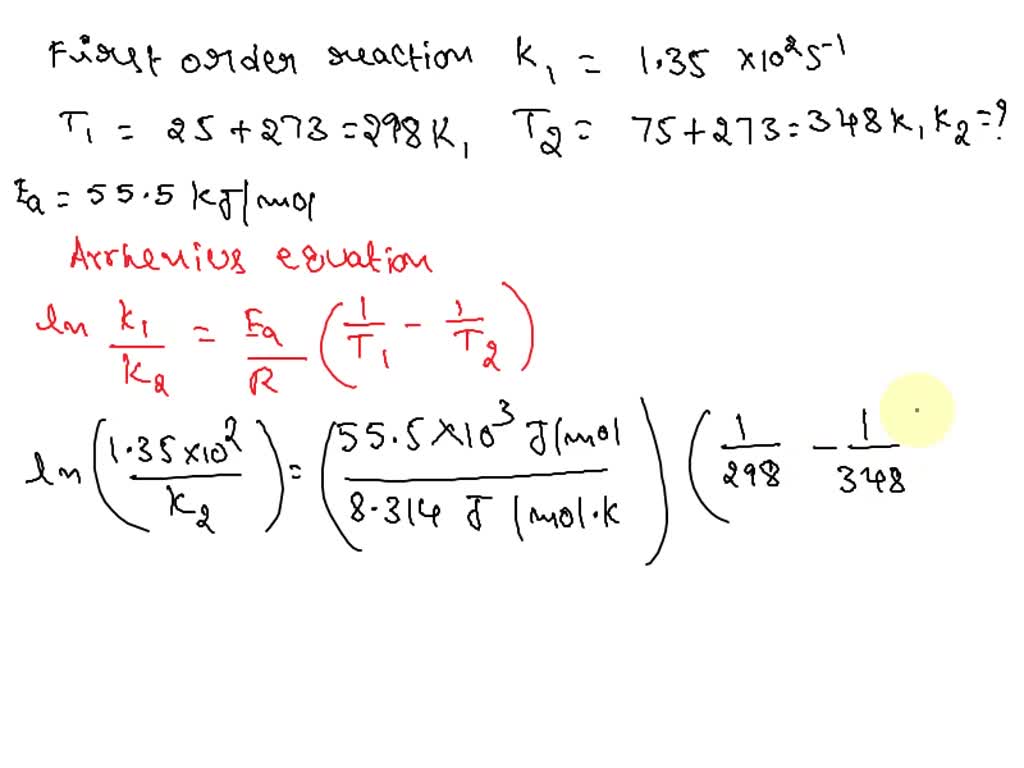 First order reaction K₁ = 1.35 ×10² S⁻¹
T₁ = 25 + 273 = 298 K, T₂ = 75 + 273 = 348 K, K₂ = ?
Ea = 55.5 KJ/mol
Arrhenius equation
ln K₁/K₂ = Ea/R (1/T₁ - 1/T₂)
ln (1.35 ×10²/K₂) = (55.5 ×10³ J/mol / 8.314 J/mol·K) (1/298 - 1/348